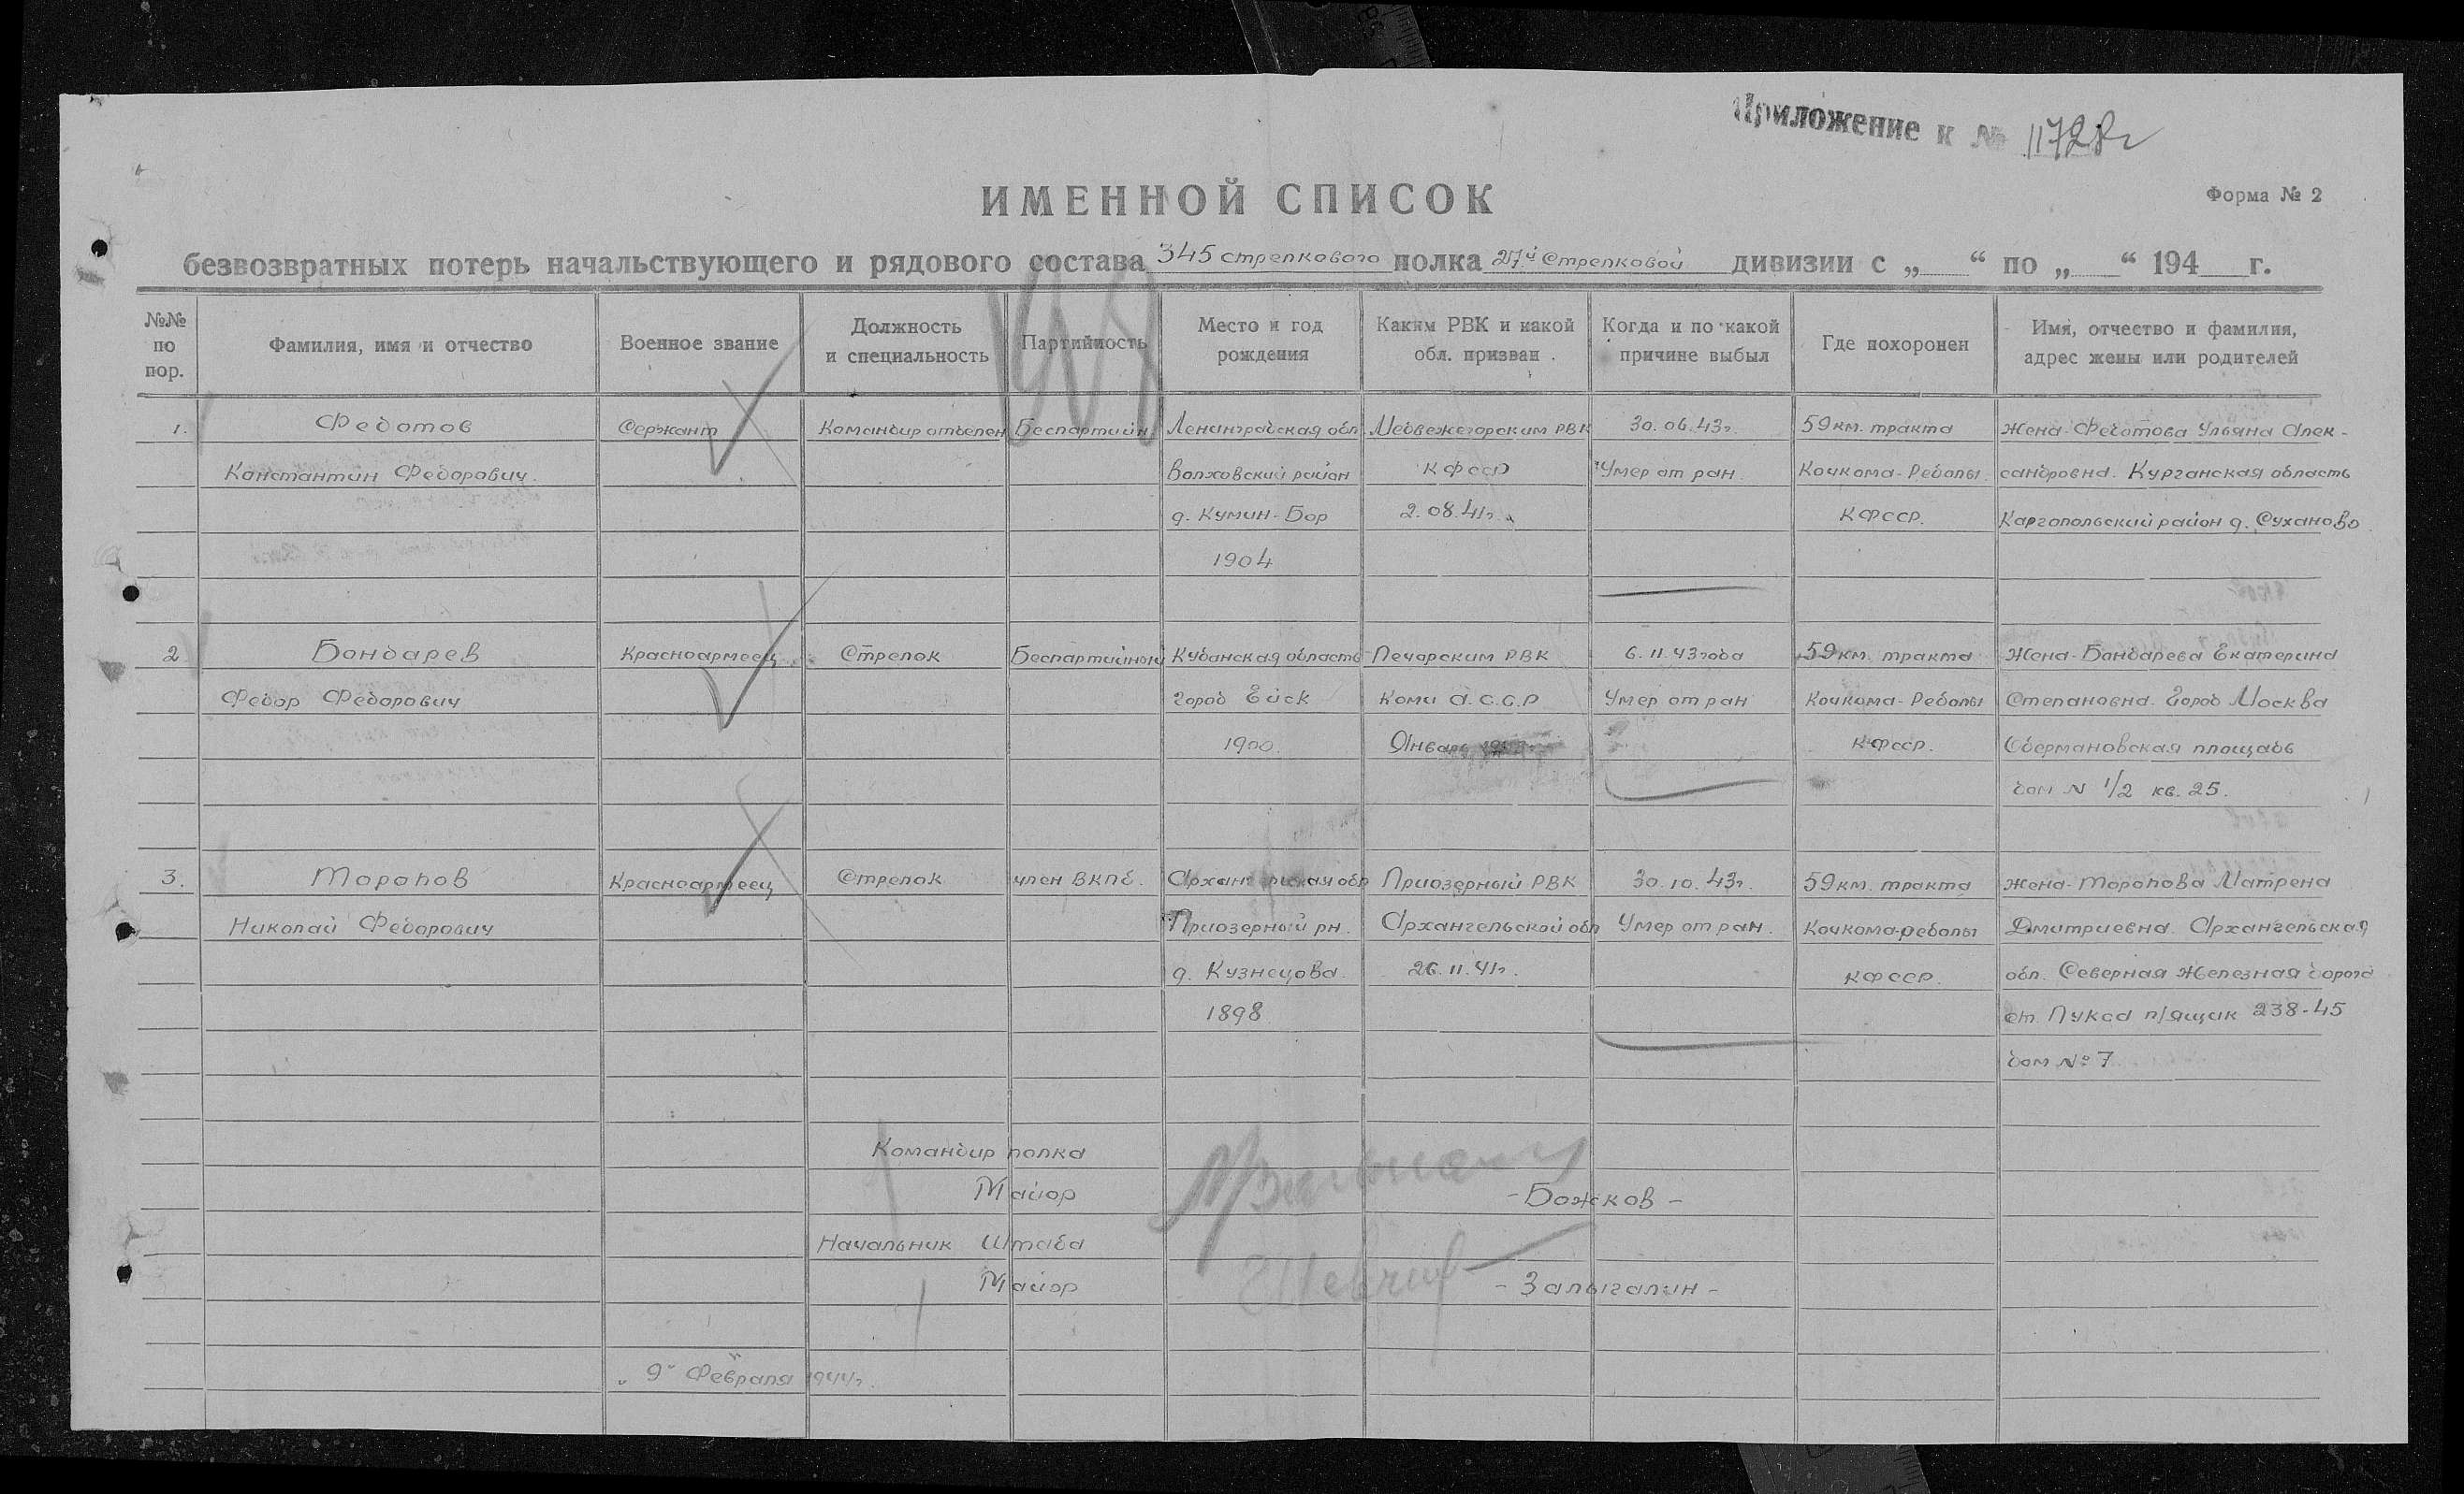 Приложение к № 11728г
ИМЕННОЙ СПИСОК
Форма № 2
безвозвратных потерь начальствующего и рядового состава 345 стрелкового полка 27й Стрелковой дивизии с „ “ по „ “ 194 г.
№№ по пор.
Фамилия, имя и отчество
Военное звание
Должность и специальность
Партийность
Место и год рождения
Каким РВК и какой обл. призван
Когда и по какой причине выбыл
Где похоронен
Имя, отчество и фамилия, адрес жены или родителей
1. Федотов Сержант Командир отделен Беспартийн Ленинградская обл Медвежегорским РВК 30.06.43г. 59 км. тракта Жена-Федотова Ульяна Алек-
Константин Федорович. Волховский район КФССР Умер от ран. Кочкома-Реболы. сандровна. Курганская область
д. Кумин-Бор 2.08.41г. КФССР. Каргопольский район д. Суханово
1904
2 Бондарев Красноармеец Стрелок Беспартийный Кубанская область Печорским РВК 6.11.43 года 59 км. тракта Жена-Бондарева Екатерина
Федор Федорович город Ейск Коми А.С.С.Р Умер от ран Кочкома-Реболы Степановна. Город Москва
1900. Январь КФССР. площадь
дом N 1/2 кв. 25.
3. Торопов Красноармеец Стрелок член ВКПб. Архангельская обл Приозерный РВК 30.10.43г. 59 км. тракта Жена-Торопова Матрена
Николай Федорович Приозерный рн. Архангельской обл Умер от ран. Кочкома-реболы Дмитриевна. Архангельская
д. Кузнецова. 26.11.41г. КФССР. обл. Северная Железная дорога
1898 ст. Пукса п/ящик 238-45
дом № 7
Командир полка
Майор - Божков -
Начальник Штаба
Майор - Залыгалин -
„ 9" Февраля 1944г.